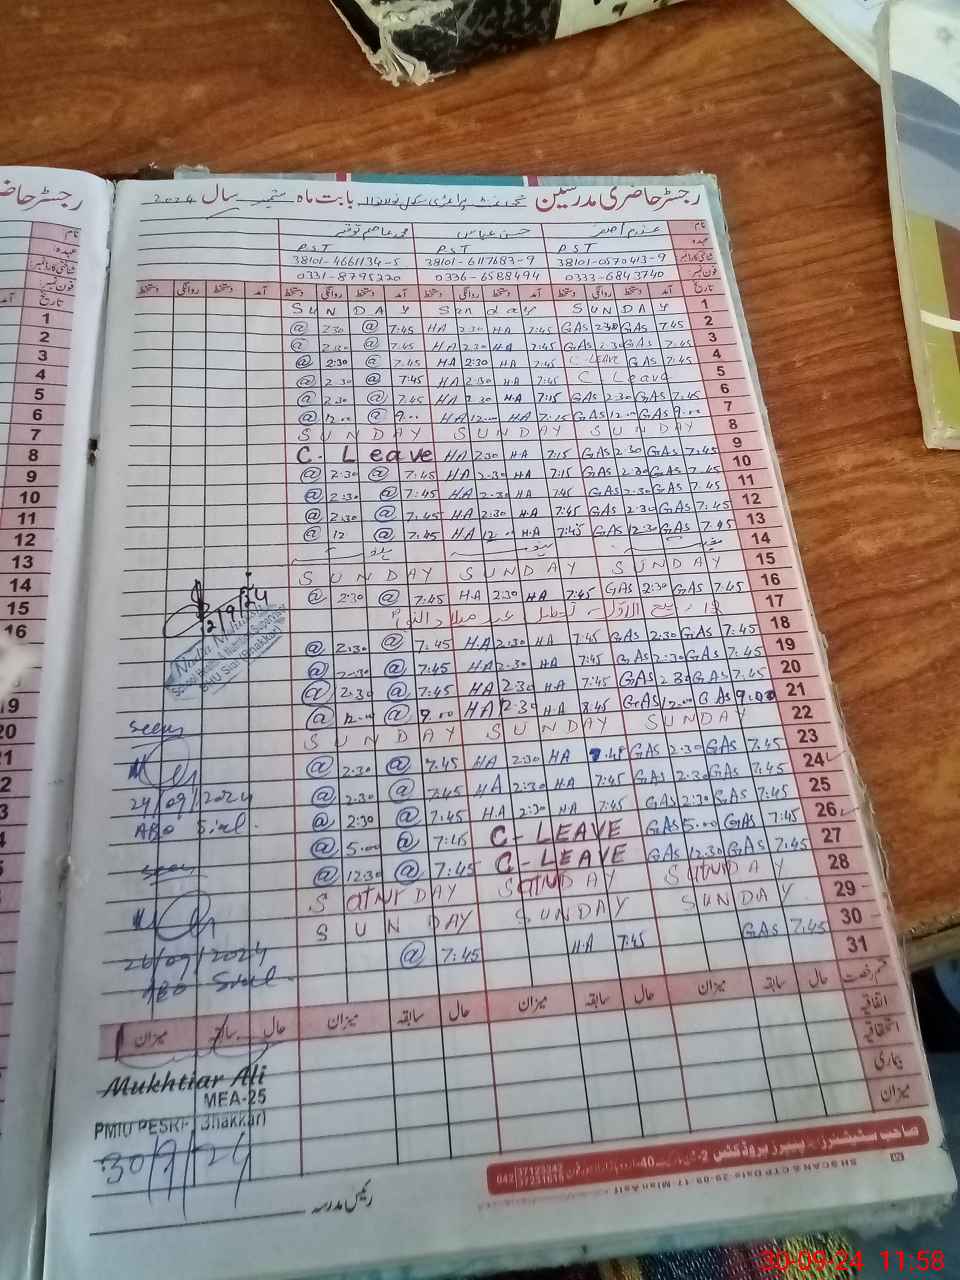 رجسٹر حاضری مدرسین گورنمنٹ پرائمری سکول بابت ماہ ستمبر سال 2024
نام حسن عباس محمد عاصم توقیر
عہدہ PST PST PST
شناختی کارڈ نمبر 38101-0570413-9 38101-6117683-9 38101-4661134-5
فون نمبر 0333-6843740 0336-6588494 0331-8795220
تاریخ آمد دستخط روانگی دستخط آمد دستخط روانگی دستخط آمد دستخط روانگی دستخط آمد دستخط روانگی دستخط
SUNDAY Sunday SUNDAY 1
@ 2:30 @ 7:45 HA 2:30 HA 7:45 GAS 2:30 GAS 7:45 2
@ 2:30 @ 7:45 HA 2:30 HA 7:45 GAS 2:30 GAS 7:45 3
@ 2:30 @ 7:45 HA 2:30 HA 7:45 C-LEAVE GAS 7:45 4
@ 2:30 @ 7:45 HA 2:30 HA 7:45 C Leave 5
@ 2:30 @ 7:45 HA 2:30 HA 7:15 GAS 2:30 GAS 7:45 6
@ 12:00 @ 9:00 HA 12:00 HA 7:15 GAS 12:00 GAS 9:00 7
SUNDAY SUNDAY SUNDAY 8
C-Leave HA 2:30 HA 7:15 GAS 2:30 GAS 7:45 9
@ 2:30 @ 7:45 HA 2:30 HA 7:15 GAS 2:30 GAS 7:45 10
@ 2:30 @ 7:45 HA 2:30 HA 7:45 GAS 2:30 GAS 7:45 11
@ 2:30 @ 7:45 HA 2:30 HA 7:45 GAS 2:30 GAS 7:45 12
@ 12 @ 7:45 HA 12:00 HA 7:45 GAS 12:30 GAS 7:45 13
14
SUNDAY SUNDAY SUNDAY 15
@ 2:30 @ 7:45 HA 2:30 HA 7:45 GAS 2:30 GAS 7:45 16
12 ربیع الاول تعطیل عید میلاد النبی 17
@ 2:30 @ 7:45 HA 2:30 HA 7:45 GAS 2:30 GAS 7:45 18
@ 2:30 @ 7:45 HA 2:30 HA 7:45 GAS 2:30 GAS 7:45 19
@ 2:30 @ 7:45 HA 2:30 HA 7:45 GAS 2:30 GAS 7:45 20
@ 12:00 @ 9:00 HA 2:30 HA 8:45 GAS 12:00 GAS 9:00 21
SUNDAY SUNDAY SUNDAY 22
@ 2:30 @ 7:45 HA 2:30 HA 7:45 GAS 2:30 GAS 7:45 23
@ 2:30 @ 7:45 HA 2:30 HA 7:45 GAS 2:30 GAS 7:45 24
@ 2:30 @ 7:45 HA 2:30 HA 7:45 GAS 2:30 GAS 7:45 25
@ 5:00 @ 7:45 C-LEAVE GAS 5:00 GAS 7:45 26
@ 12:30 @ 7:45 C-LEAVE GAS 12:30 GAS 7:45 27
28
SUNDAY SUNDAY SUNDAY 29
@ 7:45 HA 7:45 GAS 7:45 30
31
seen
24/09/2024
AEO Sial
seen
26/09/2024
AEO Sial
قسم رخصت حال سابقہ میزان حال سابقہ میزان حال سابقہ میزان حال سابقہ میزان
اتفاقیہ
استحقاقیہ
بیماری
میزان
Mukhtiar Ali
MEA-25
PMIU PESRP Bhakkar
30/9/24
رئیس مدرسہ
042 37123242
37251616
30-09-24 11:58